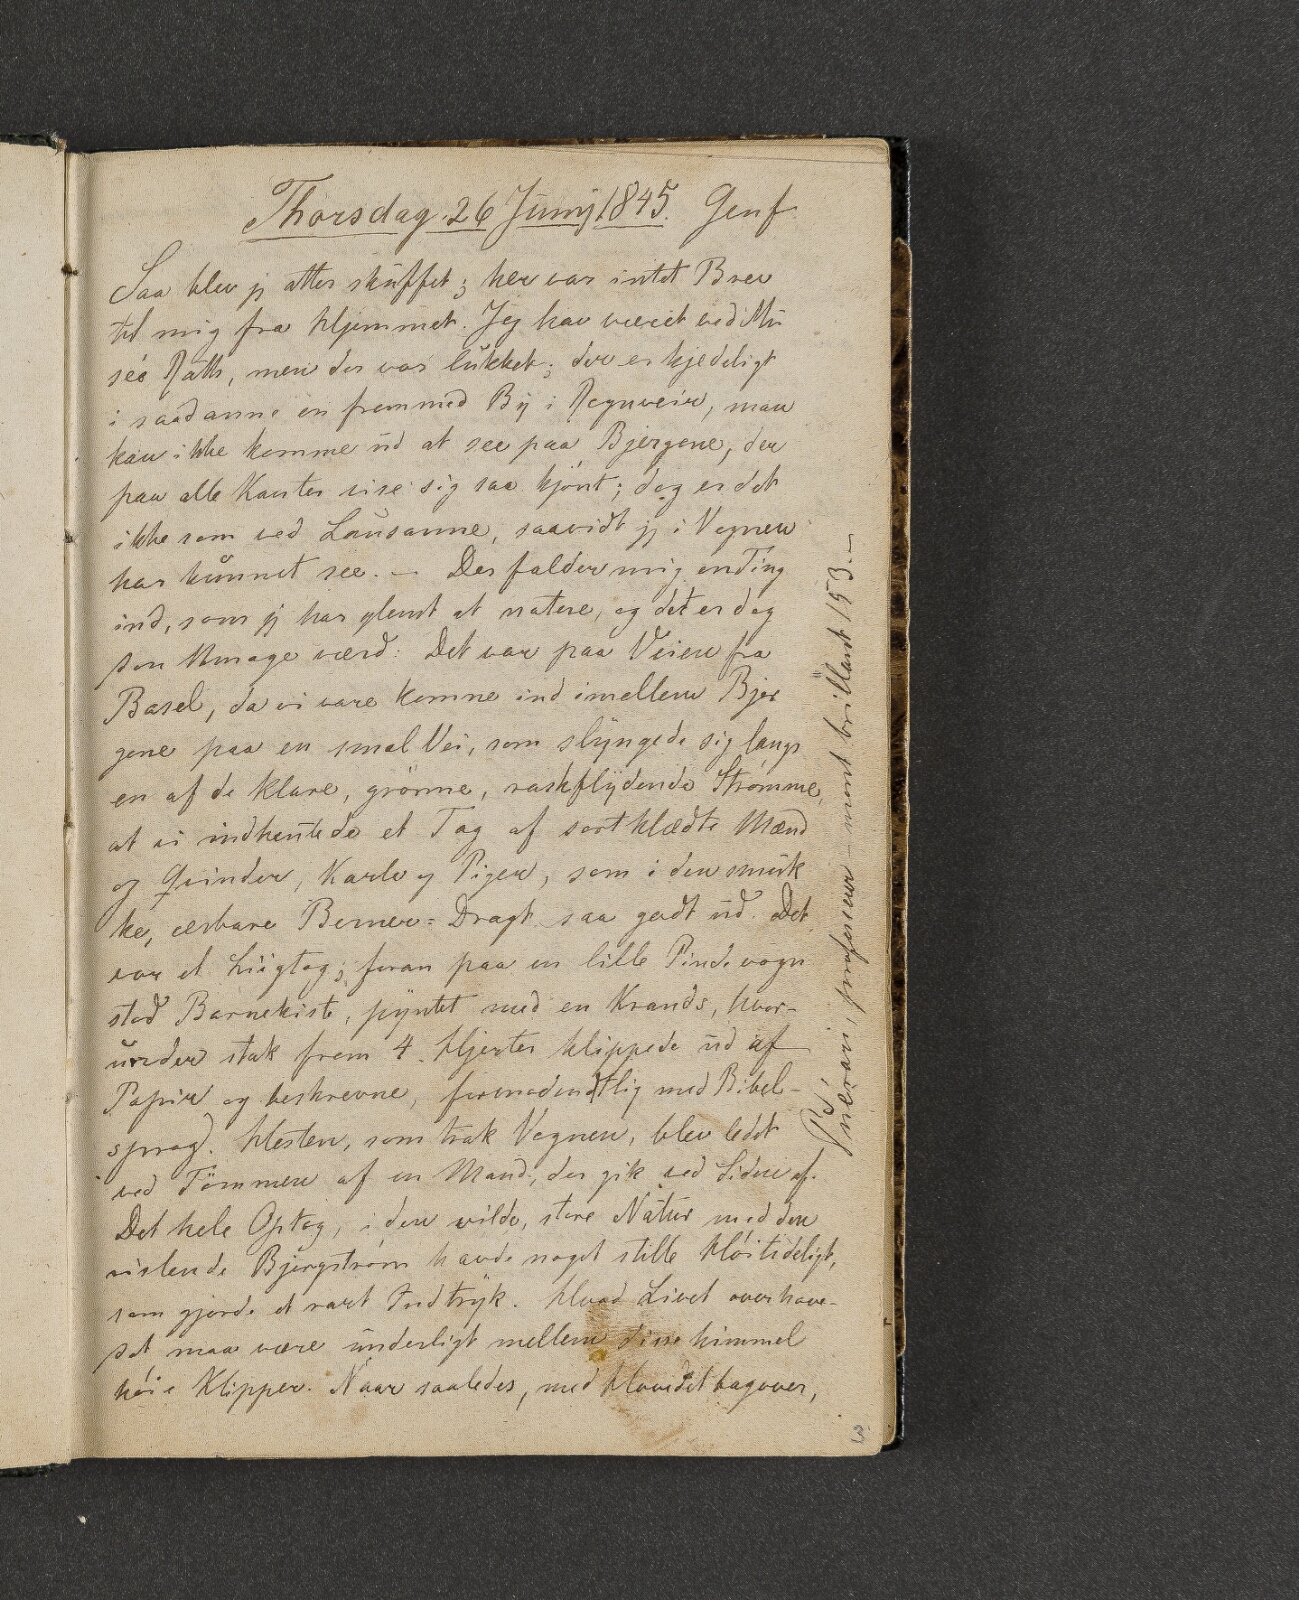 Thorsdag. 26 Junij 1845. Genf.
Saa blev jg atter skuffet; her var intet Brev
til mig fra Hjemmet. Jeg har været ved Mu
séé Rath, men der var lukket; der er kjedeligt
i saadanne en fremmed By i Regnveir, man
kan ikke komme ud at see paa Bjergene, der
paa alle Kanter vise sig saa kjönt; dog er det
ikke som ved Lausanne, saavidt jg i Vognen
har kunnet see. – Der falder mig en Ting
ind, som jg har glemt at notere, og det er dog
den Umage værd: Det var paa Veien fra
Basel, da vi vare komne ind imellem Bjer
gene paa en smal Vei, som slyngede sig langs
en af de klare, grönne, raskflydende Strömme,
at vi indhentede et Tog af sortklædte Mænd
og Qvinder, Karle og Piger, som i den smuk
ke, ærbare Berner=Dragt saa godt ud. Det
var et Liigtog; foran paa en lille Vogn
stod Barnekiste, pyntet med en Krands, hvor-
under stak frem 4 Hjerter klippede ud af
Papir og beskrevne, formodentlig med Bibel-
sprog). Hesten, som trak Vognen, blev ledet
ved Tömmen af en Mand, der gik ved Siden af.
Det hele Optog, i den vilde, store Natur med den
Bjergström havde noget stille Höitideligt,
som gjorde et rart Indtryk. Hvad Livet overhove-
det maa være underligt mellem disse himmel
höie Klipper. Naar saaledes, med Hovedet bagover,
professeur – mont brillant 153. –
3